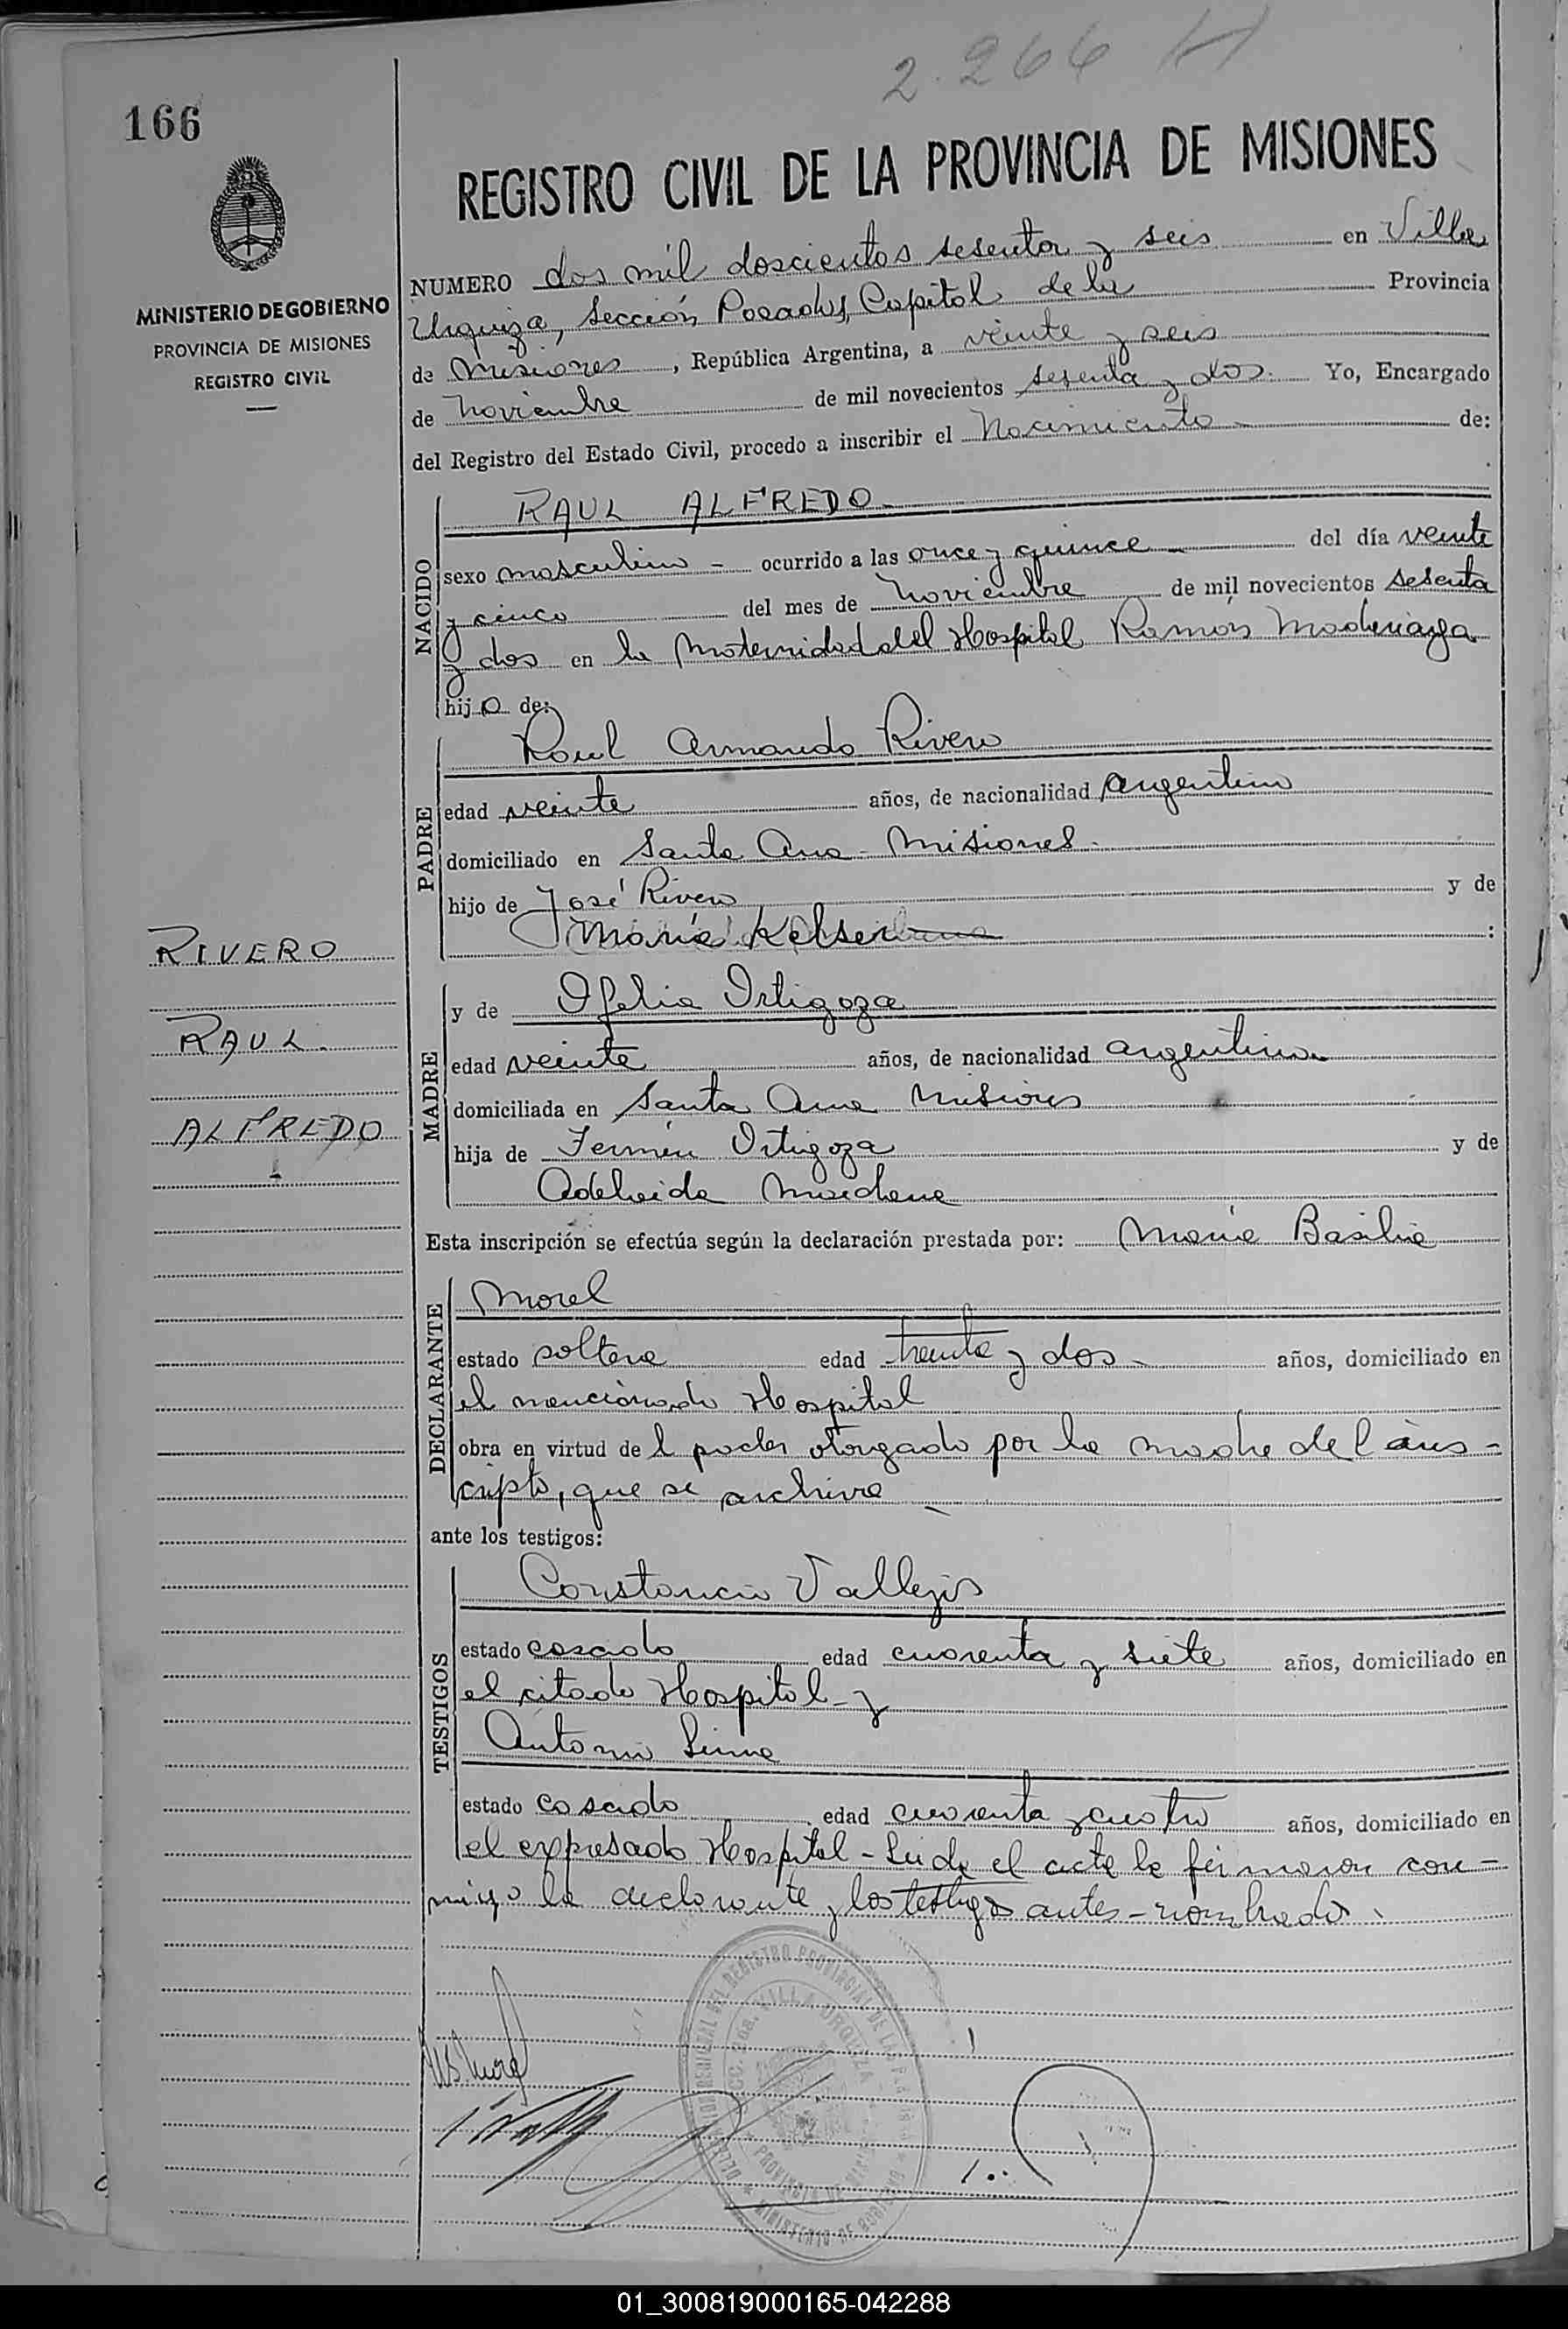 2.266 H
166
REGISTRO CIVIL DE LA PROVINCIA DE MISIONES
MINISTERIO DE GOBIERNO
PROVINCIA DE MISIONES
REGISTRO CIVIL
NUMERO dos mil doscientos sesenta y seis en Villa
Urquiza, Sección Posadas, Capital de la Provincia
de Misiones, República Argentina, a veinte y seis
de Noviembre de mil novecientos sesenta y dos. Yo, Encargado
del Registro del Estado Civil, procedo a inscribir el Nacimiento de:
NACIDO
RAUL ALFREDO
sexo masculino - ocurrido a las once y quince - del día veinte
y cinco del mes de Noviembre de mil novecientos sesenta
y dos en la Maternidad del Hospital Ramón Madariaga
hijo de:
PADRE
Raul Armando Rivero
edad veinte años, de nacionalidad argentino
domiciliado en Santa Ana - Misiones.
hijo de José Rivero y de
María Kelser :
RIVERO
RAUL.
ALFREDO
MADRE
y de Ofelia Ortigoza
edad veinte años, de nacionalidad argentina
domiciliada en Santa Ana Misiones
hija de Fermín Ortigoza y de
Adelaida
Esta inscripción se efectúa según la declaración prestada por: María Basilia
DECLARANTE
Morel
estado soltera edad treinta y dos - años, domiciliado en
el mencionado Hospital
obra en virtud de l poder otorgado por la madre del ins-
cripto, que se archiva
ante los testigos:
TESTIGOS
Constancio Vallejos
estado casado edad cuarenta y siete años, domiciliado en
el citado Hospital - y
Antonio
estado casado edad cuarenta y cuatro años, domiciliado en
el expresado Hospital - Leida el acta la firmaron con-
migo la declarante y los testigos antes-nombrados.
MS Morel
VILLA URQUIZA
01_300819000165-042288